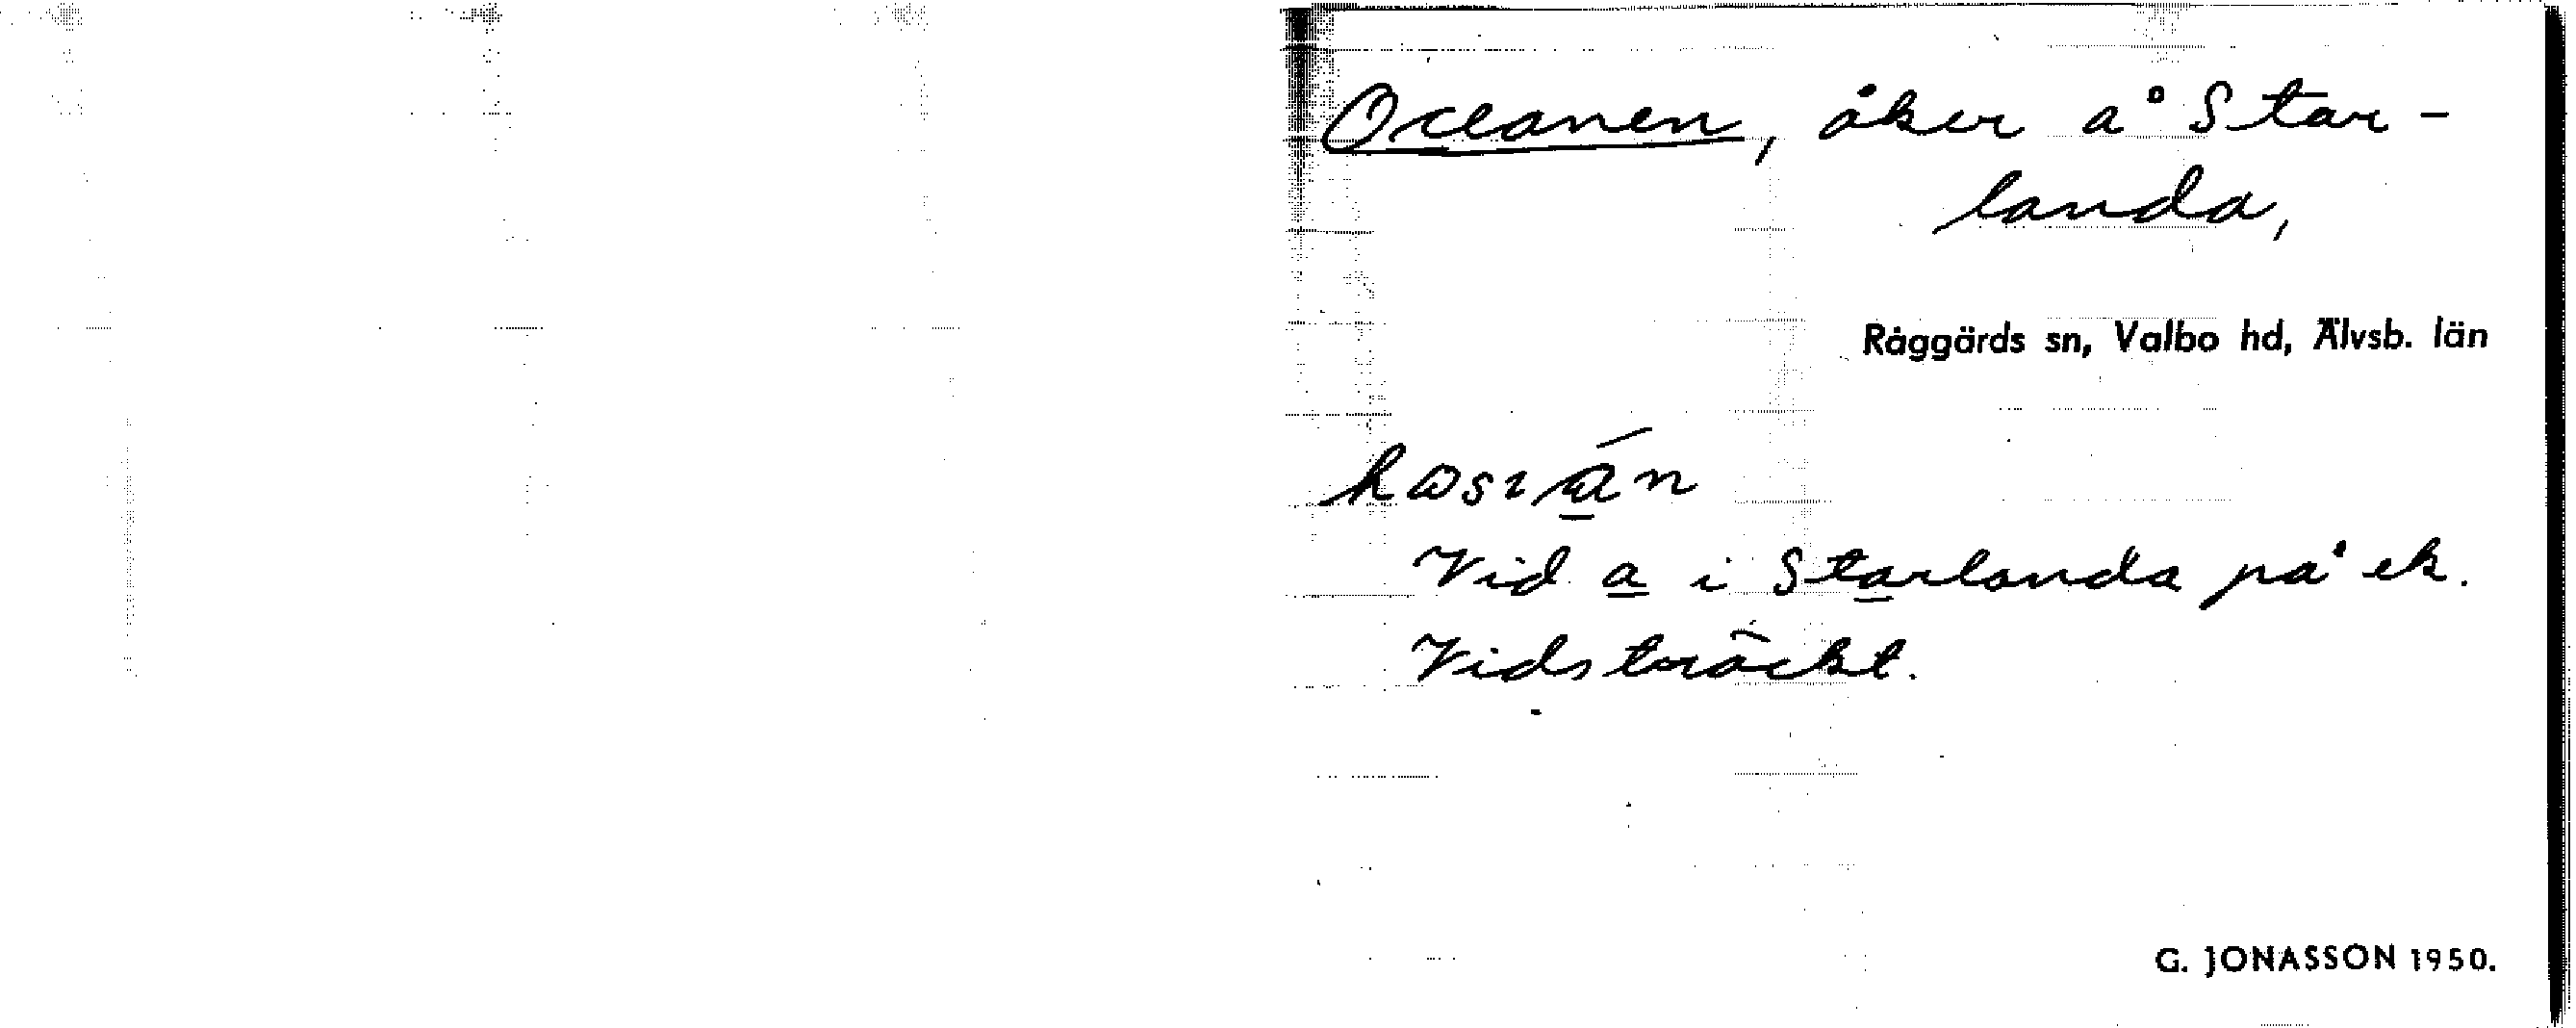 Oceanen, åker å Star-
landa,
Råggärds sn, Valbo hd, Älvsb. län
Vid a i Starlanda på ek.
Vidsträckt.
G. JONASSON 1950.